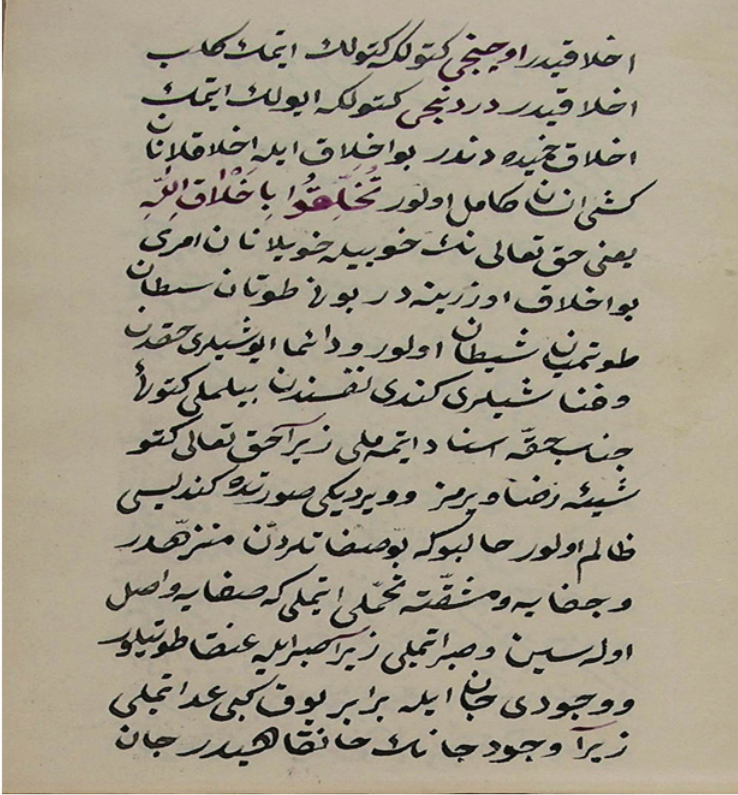 اخلاقیدر اوچنجی کتولکه کتولك ایتمك کلب
اخلاقیدر دردنجی کتولکه ایولك ایتمك
اخلاق حمیده دندر بو اخلاق ایله اخلاقلانان
کشی انسان کامل اولور تَخَلَّقُوا بِاَخْلَاقِ اللّٰهِ
یعنی حق تعالی نك خوییله خویلانان امری
بو اخلاق اوزرینه در بونی طوتان سلطان
طوتمیان شیطان اولور ودائما ایو شیلری حقدن
وفنا شیلری کندی نفسندن بیلملی کتولۀ
جناب حقه اسناد ایتمه ملی زیرا حق تعالی کتو
شیئه رضا ویرمز و ویردیکی صورتده کندیسی
ظالم اولور حالبوکه بو صفاتلردن منزّهدر
و جفایه و مشقّته تحمّلی ایتملی که صفایه واصل
اوله سین و صبر ایتملی زیرا صبر ایله عنقا طوتیلور
و وجودی جان ایله برابر یوق کبی عد ایتملی
زیرا وجود جانك خانقاهیدر جان